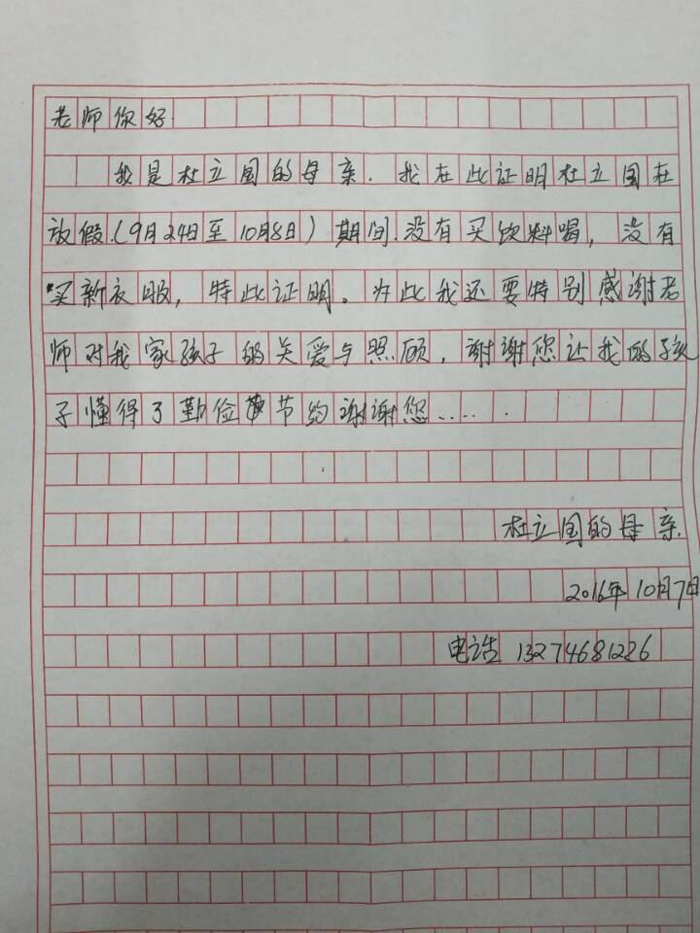 老师你好.
我是杜立国的母亲.我在此证明杜立国在
放假.(9月24日至10月8日)期间.没有买饮料喝,没有
买新衣服,特此证明。为此我还要特别感谢老
师对我家孩子的关爱与照顾,谢谢您让我的孩
子懂得了勤俭节约谢谢您.....
杜立国的母亲.
2016年10月7日
电话 13274681286